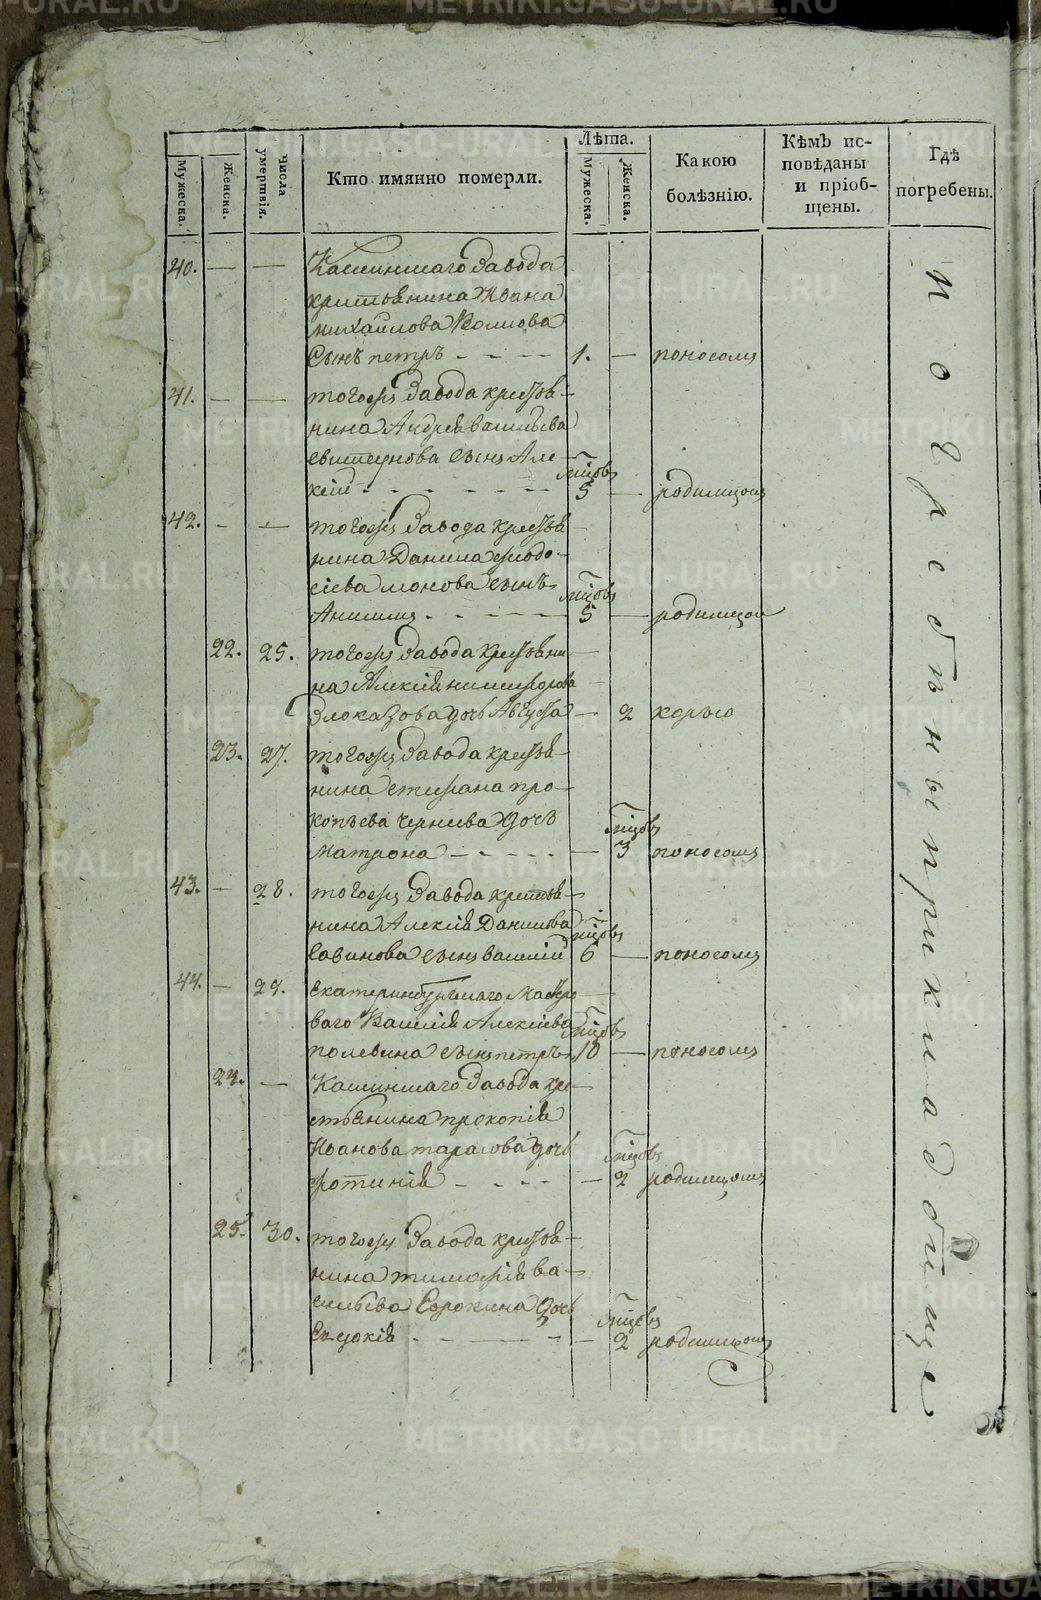 METRIKI.GASO-URAL.RU
Мужеска.
Женска.
Числа умертвія.
Кто имянно померли.
Лѣта.
Мужеска.
Женска.
Какою
болѣзнію.
Кѣмъ ис-
повѣданы
и пріоб-
щены.
Гдѣ
погребены.
40. — — Каслинскаго завода
крестьянина Ивана
михайлова
Сынъ петръ - - - - 1. — поносомъ
41. — — тогожъ завода крестья-
нина Андрея васильева
сынъ Але-
ксій - - - - - мцовъ 5 — родимцомъ
42. - — тогожъ завода крестья-
нина Данила феодо-
сіева сынъ
- - - - мцовъ 5 — родимцом
22. 25. тогожъ завода крестьяни-
на Алексія никифорова
Злоказова дочь Августа — 2 корью
23. 27. тогожъ завода крестья-
нина стефана про-
копьева дочь
матрона - - - - — мцовъ 3 поносомъ
43. — 28. тогожъ завода крестья-
нина Алексія Данилова
Савинова сынъ василій мцовъ 6 — поносомъ
44. — 29. Екатеринбургскаго Мастеро-
ваго Василія Алексіева
полевина сынъ петръ мцовъ 10 — поносомъ
24. — Каслинскаго завода кре-
стьянина прокопія
Иванова тарасова дочь
фотинія - - - - — мцовъ 2 родимцомъ
25. 30. тогожъ завода крестья-
нина тимофія ва-
сильева Сорокина дочь
Евдокія - - - - — мцовъ 2 родимцомъ
погребены при кладбище